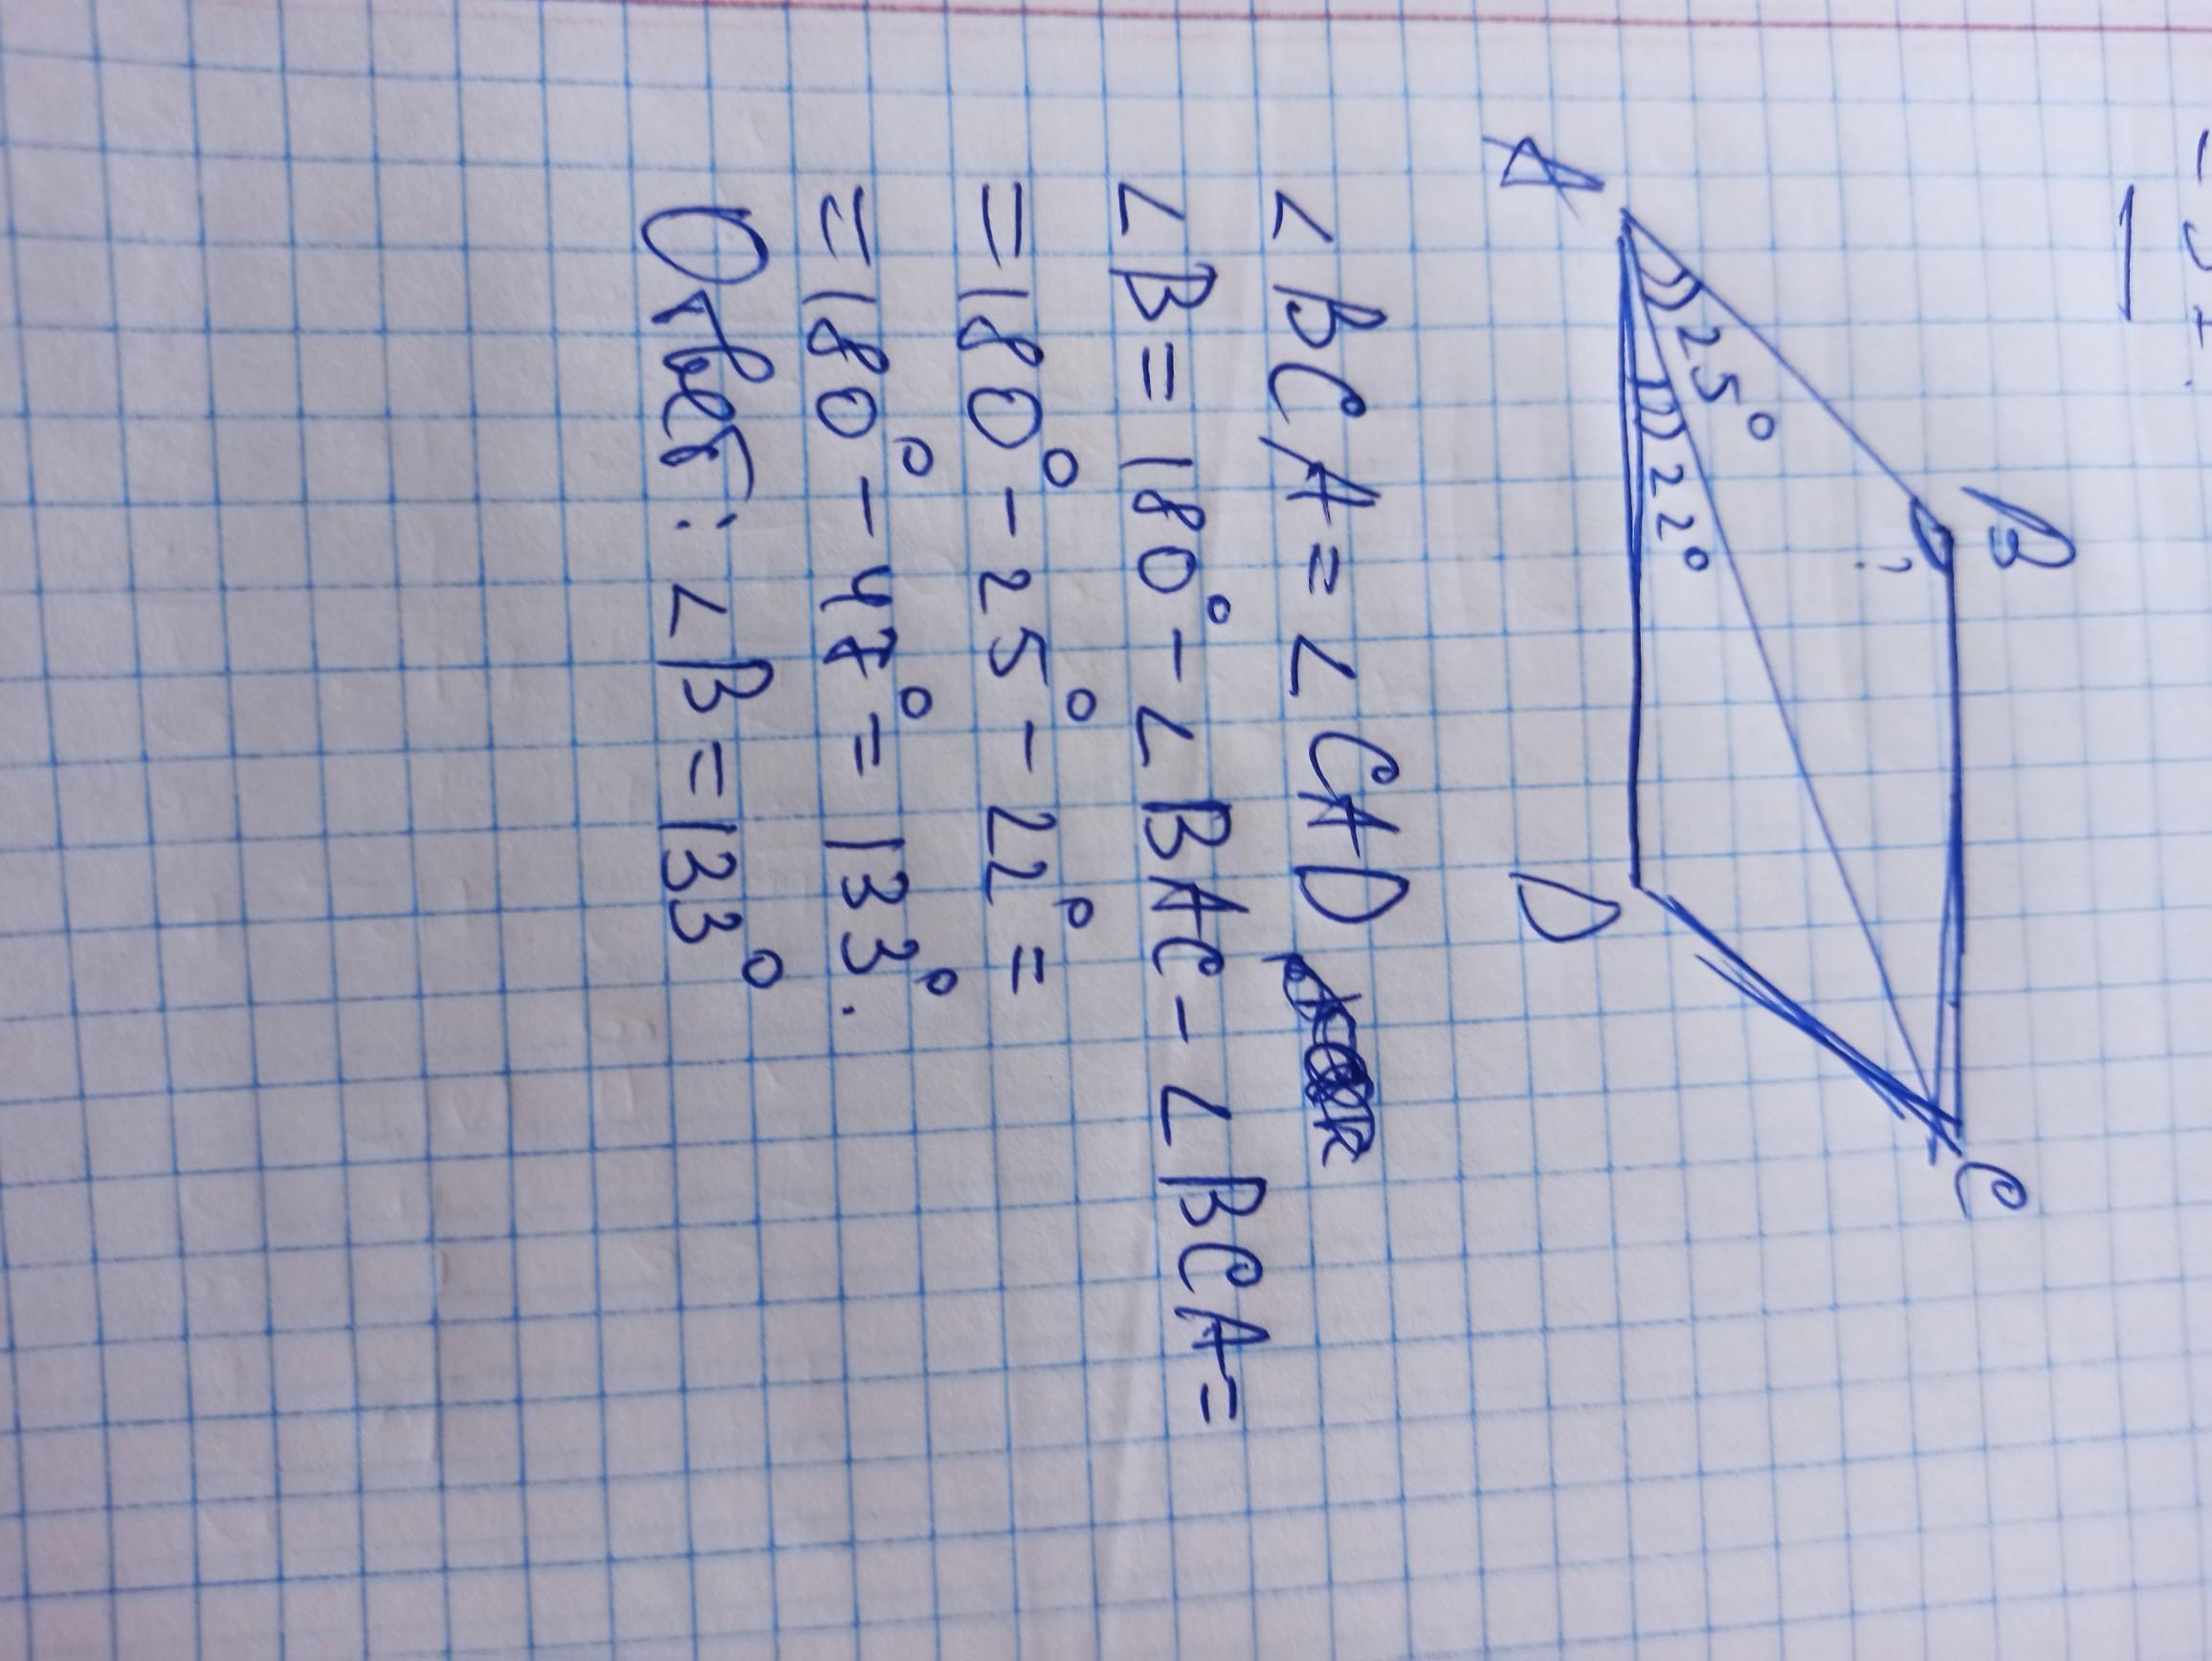 B
C
25°
?
22°
A
D
∠BCA = ∠CAD
∠B = 180° - ∠BAC - ∠BCA =
= 180° - 25° - 22° =
= 180° - 47° = 133°.
Ответ: ∠B = 133°